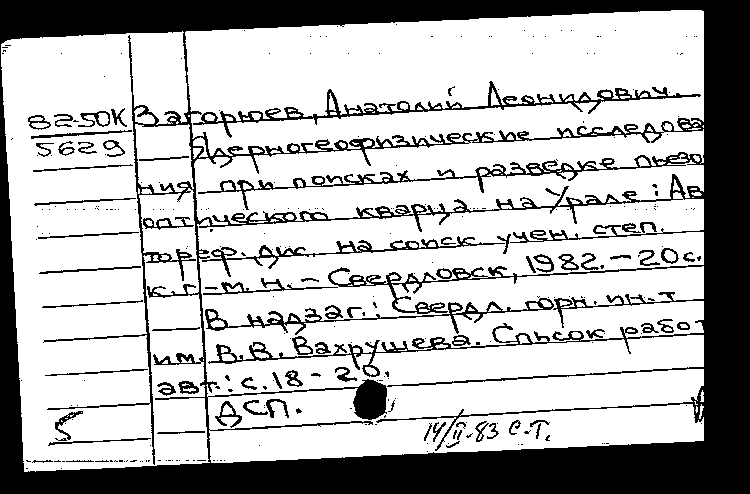 82-50К Загорюев, Анатолий Леонидович.
5629 Ядерногеофизические исследова
ния при поисках и разведке пьезо
оптического кварца на Урале: Ав
тореф. дис. на соиск учен. степ.
к.г.-м.н. - Свердловск, 1982. - 20с.
В надзаг.: Свердл. горн. ин-т
им. В.В. Вахрушева. Список работ
авт.: с.18-20.
ДСП.
5
14/II-83 С.Т.